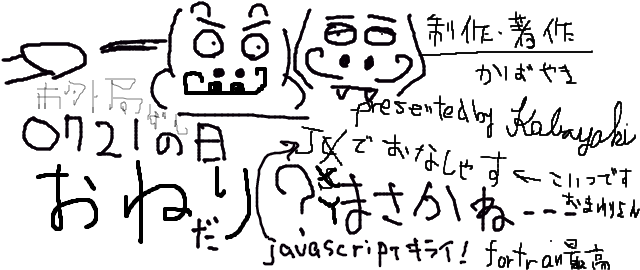 制作・著作
かばやき
presented by Kabayaki
0721の日
JKでおなしゃす ← こいつです
おねだり?
まさかね---
おまわりさん
javascriptキライ! fortran最高